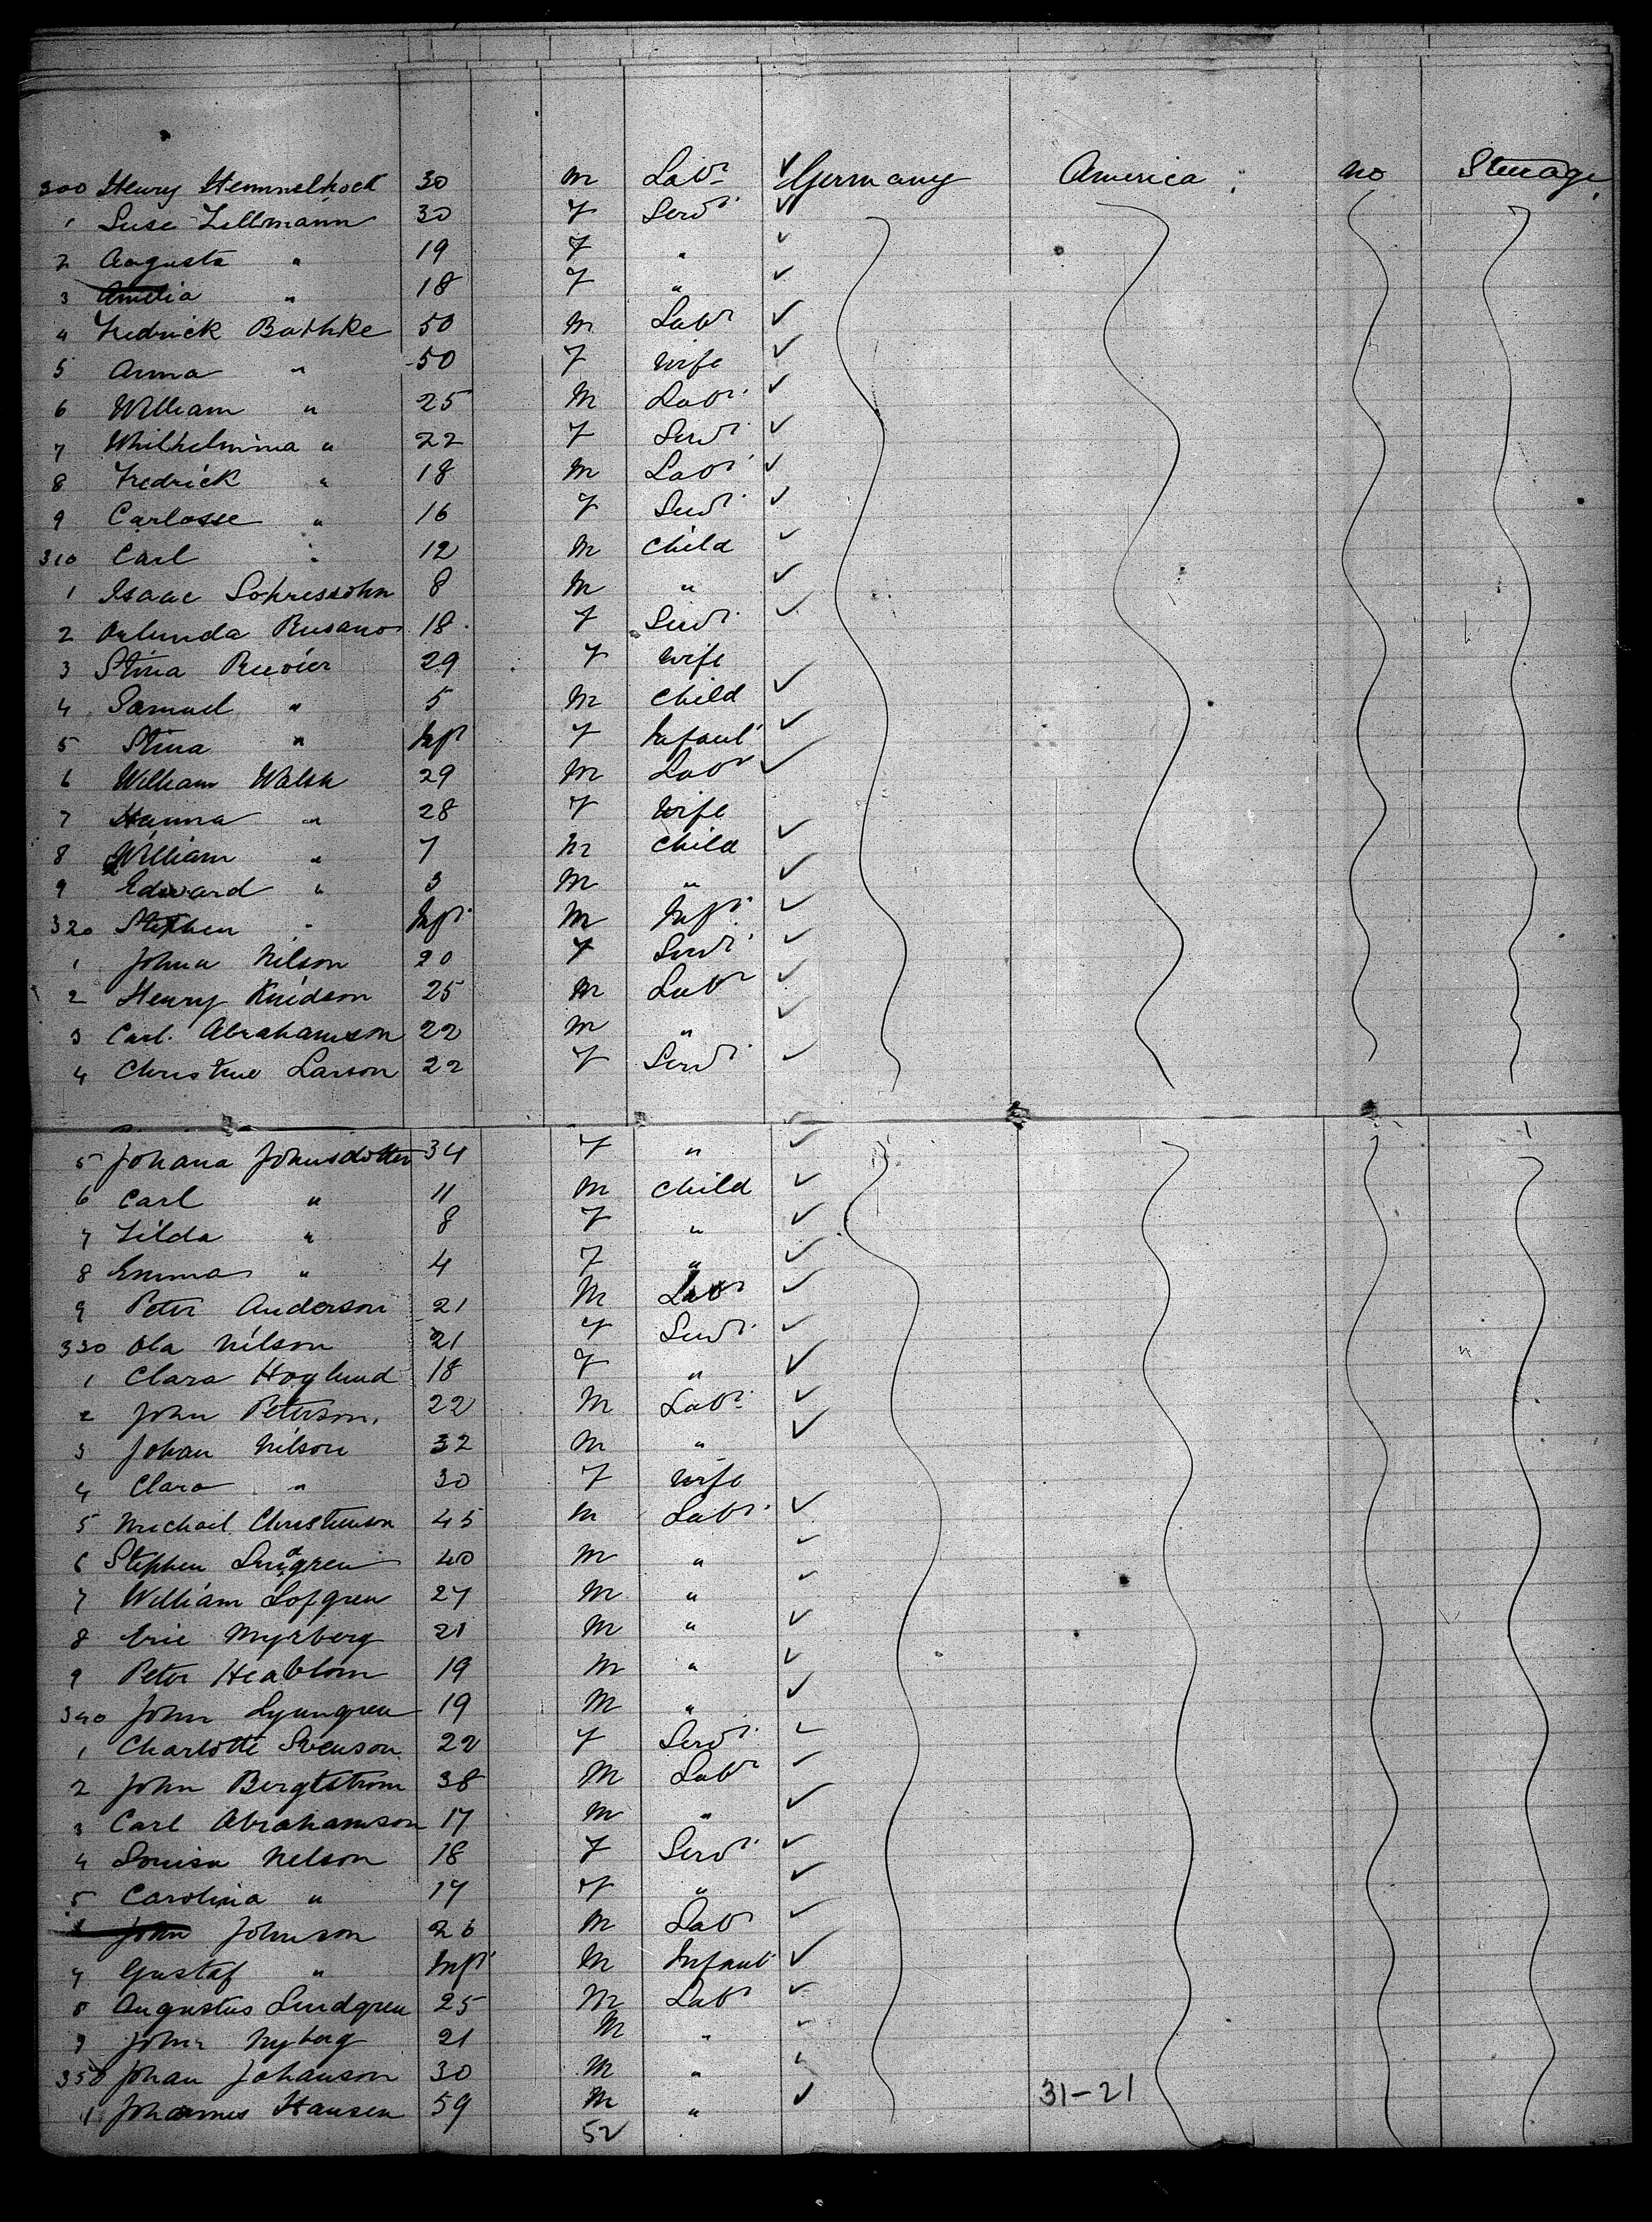 300 Henry Hemmelhock 30 M Labr Germany America no Steerage
1 Luse Zellmann 30 F Servt
2 Augusta " 19 F "
3 Amelia " 18 F "
4 Fredrick Bathke 50 M Labr
5 Anna " 50 F Wife
6 William " 25 M Labr
7 Whilhelmina " 22 F Servt
8 Fredrick " 18 M Labr
9 Carlosse " 16 F Servt
310 Carl " 12 M Child
1 Isaac 8 M "
2 18 F Servt
3 Stina Ruvier 29 F Wife
4 Samuel " 5 M Child
5 Stina " Inft F Infant
6 William Walsh 29 M Labr
7 Hanna " 28 F Wife
8 William " 7 M Child
9 Edward " 3 M "
320 Stephen " Inft M Inft
1 Johna Nilson 20 F Servt
2 Henry Knidson 25 M Labr
3 Carl Abrahamson 22 M "
4 Christine Larson 22 F Servt
5 Johana Johnsdotter 34 F "
6 Carl " 11 M Child
7 Zilda " 8 F "
8 Emma " 4 F "
9 Peter Anderson 21 M Labr
330 Ola Nilson 21 F Servt
1 Clara Hoglund 18 F "
2 John Peterson 22 M Labr
3 Johan Nilson 32 M "
4 Clara " 30 F Wife
5 Michail Christenson 45 M Labr
6 Stephen 40 M "
7 William Lofgren 27 M "
8 Eric Myrberg 21 M "
9 Peter Heablom 19 M "
340 John Lyungren 19 M "
1 Charlotte Svenson 22 F Servt
2 John Bergtstrom 38 M Labr
3 Carl Abrahamson 17 M "
4 Louisa Nelson 18 F Servt
5 Carolina " 17 F "
John Johnson 26 M Labr
7 Gustaf " Inft M Infant
8 Augustus Lindgren 25 M Labr
9 John Nyberg 21 M "
350 Johan Johanson 30 M "
1 Johannes Hansen 59 M "
52 31-21